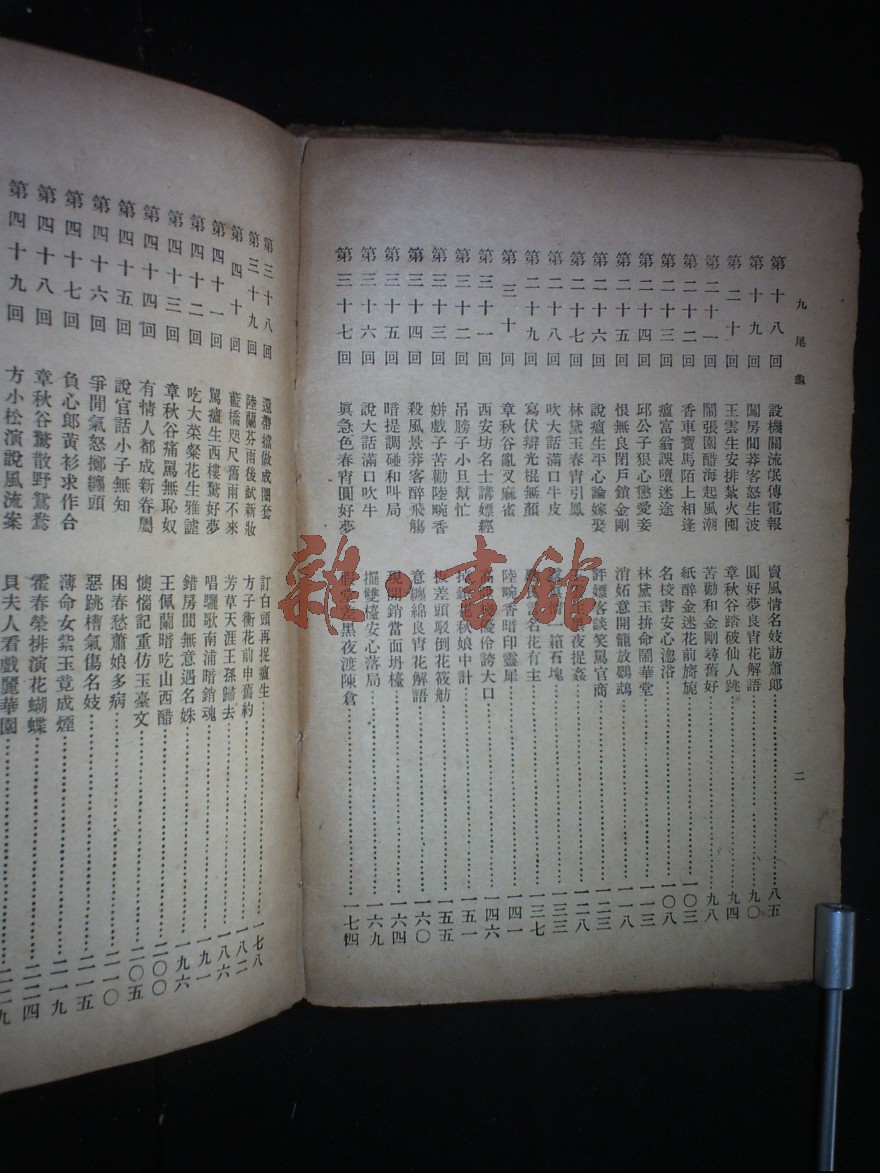 九尾龜
二
第十八回 設機關流氓傳電報 賣風情名妓訪蕭郎 八五
第十九回 鬧房間莽客怒生波 圓好夢良宵花解語 九〇
第二十回 王雲生安排紮火囤 章秋谷踏破仙人跳 九四
第二十一回 鬧張園醋海起風潮 苦勸和金剛尋舊好 九八
第二十二回 香車寶馬陌上相逢 紙醉金迷花前旖旎 一〇三
第二十三回 瘟富翁誤墮迷途 名校書安心淴浴 一〇八
第二十四回 邱公子狠心懲愛妾 林黛玉拚命鬧華堂 一一三
第二十五回 恨無良閉戶鎖金剛 消妬意開籠放鸚鵡 一一八
第二十六回 說瘟生平心論嫁娶 評嫖客談笑罵官商 一二三
第二十七回 林黛玉春宵引鳳 夜捉姦 一二八
第二十八回 吹大話滿口牛皮 一箱石塊 一三三
第二十九回 寫伏辯光棍無顏 名花有主 一三七
第三十回 章秋谷亂叉麻雀 陸畹香暗印靈犀 一四一
第三十一回 西安坊名士講嫖經 優伶誇大口 一四六
第三十二回 吊膀子小旦幫忙 秋娘中計 一五一
第三十三回 姘戲子苦勸陸畹香 接差頭駁倒花筱舫 一五五
第三十四回 殺風景莽客醉飛觴 意纏綿良宵花解語 一六〇
第三十五回 暗提調碰和叫局 現開銷當面坍檯 一六四
第三十六回 說大話滿口吹牛 擺雙檯安心落局 一六九
第三十七回 眞急色春宵圓好夢 黑夜渡陳倉 一七四
第三十八回 還帶擋做成圈套 訂白頭再捉瘟生 一七八
第三十九回 陸蘭芬雨後試新妝 方子衡花前申舊約 一八二
第四十回 藍橋咫尺舊雨不來 芳草天涯王孫歸去 一八六
第四十一回 罵瘟生西樓驚好夢 唱驪歌南浦暗銷魂 一九一
第四十二回 吃大菜粲花生雅謔 錯房間無意遇名姝 一九六
第四十三回 章秋谷痛罵無恥奴 王佩蘭暗吃山西醋 二〇〇
第四十四回 有情人都成新眷屬 懊惱記重仿玉臺文 二〇五
第四十五回 說官話小子無知 困春愁蕭娘多病 二一〇
第四十六回 爭閒氣怒擲纏頭 惡跳槽氣傷名妓 二一五
第四十七回 負心郎黃衫求作合 薄命女紫玉竟成煙 二一九
第四十八回 章秋谷驚散野鴛鴦 霍春榮排演花蝴蝶 二二四
第四十九回 方小松演說風流案 貝夫人看戲麗華園 二二九
雜·書館